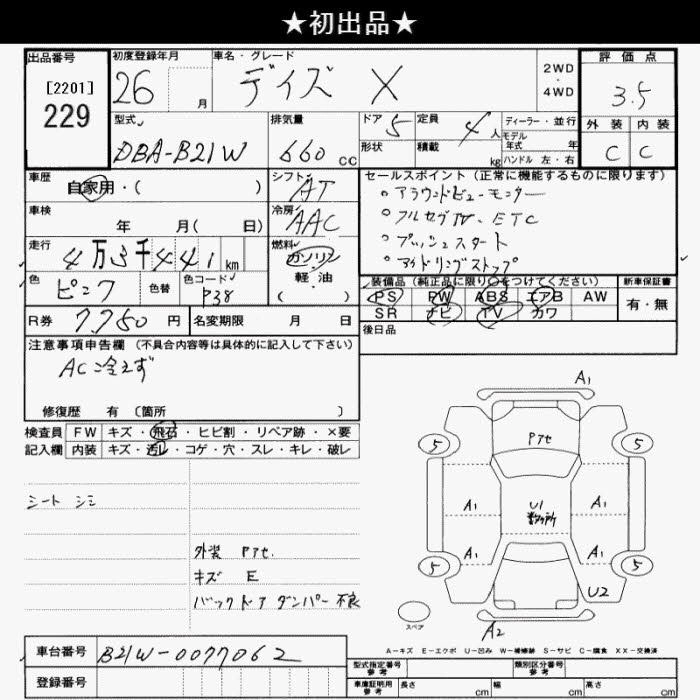 ★初出品★
出品番号 初度登録年月 車名・グレード 評価点
[2201] 26 月 デイズ X 2WD・4WD 3.5
229
型式 排気量 ドア 5 定員 4 人 ディーラー・並行 外装 内装
DBA-B21W 660 CC 形状 積載 kg モデル年式 年 C C
ハンドル 左・右
車歴 シフト セールスポイント(正常に機能するものに限ります)
自家用・( ) AT ○アラウンドビューモニター
車検 冷房 ○フルセグTV・ETC
年 月( 日) AAC ○プッシュスタート
走行 燃料 ○アイドリングストップ
4万3千441km ガソリン
軽・油
( )
色 色替 色コード 装備品(純正品に限り○をつけてください) 新車保証書
ピンク P38 PS PW ABS エアB AW 有・無
SR ナビ TV カワ
R券 7,750 円 名変期限 月 日 後日品
注意事項申告欄(不具合内容等は具体的に記入して下さい)
AC冷えず
修復歴 有 〔箇所 〕
検査員 FW キズ・飛石・ヒビ割・リペア跡・×要
記入欄 内装 キズ・汚レ・コゲ・穴・スレ・キレ・破レ
シート シミ
外装 Pアセ.
キズ E
バックドア ダンパー 不良
A1
Pアセ
5 5
A1 U1 A1
数ヶ所
A1 A1
5 5
U2
スペア
A2
A-キズ E-エクボ U-凹み W-補修跡 S-サビ C-腐食 XX-交換済
車台番号 B21W-0077062
登録番号
型式指定番号 参考 類別区分番号 参考
車庫証明用 参考 長さ cm 幅 cm 高さ cm